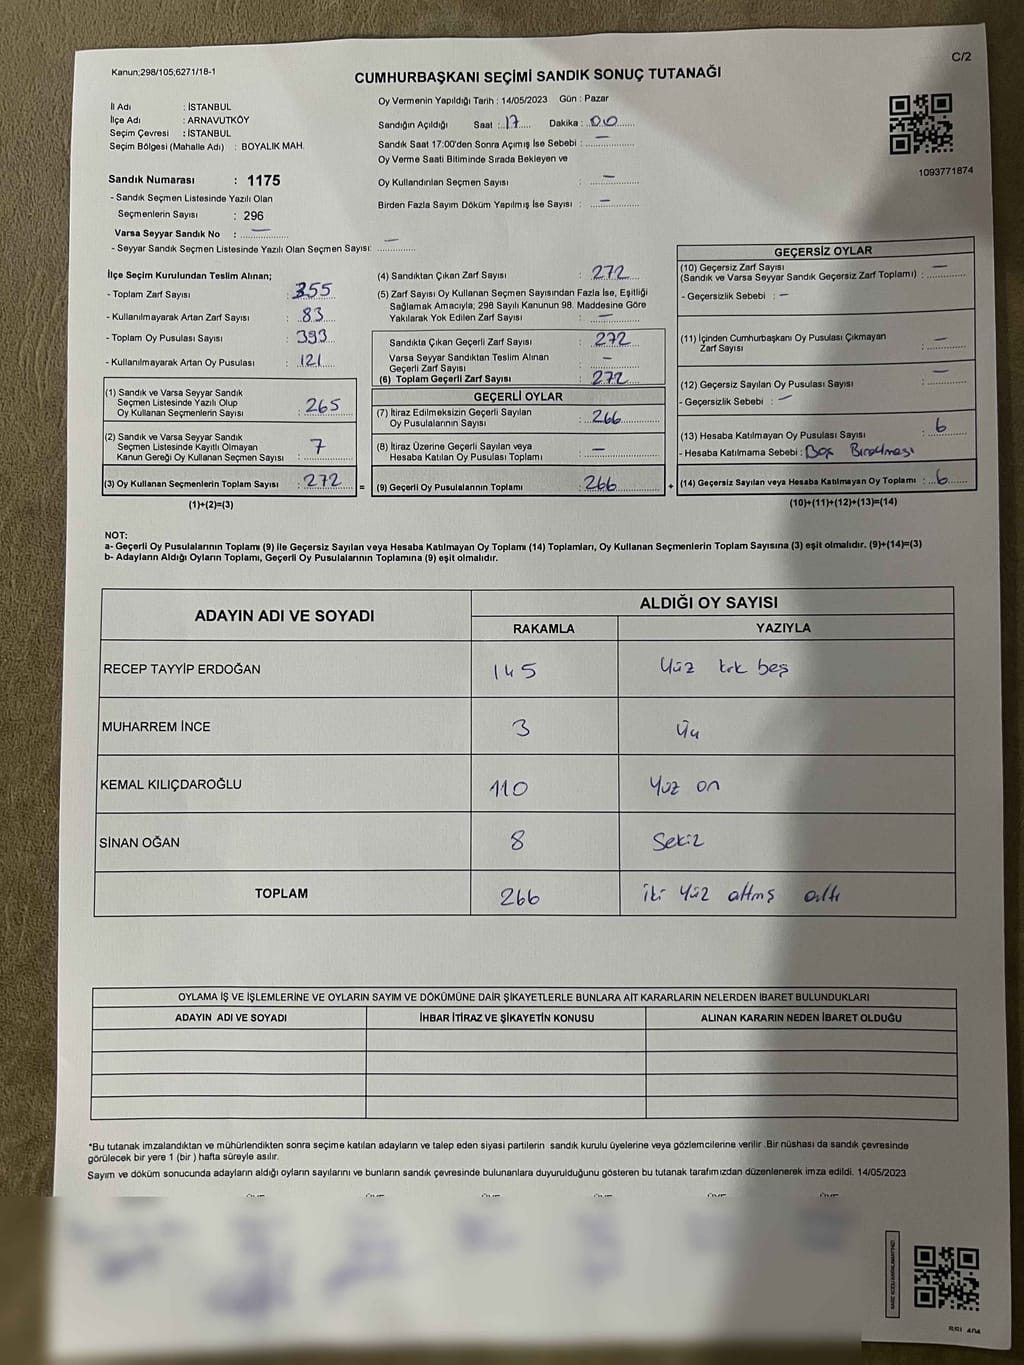 Kanun;298/105;6271/18-1
C/2
CUMHURBAŞKANI SEÇİMİ SANDIK SONUÇ TUTANAĞI
İl Adı : İSTANBUL
İlçe Adı : ARNAVUTKÖY
Seçim Çevresi : İSTANBUL
Seçim Bölgesi (Mahalle Adı) : BOYALIK MAH.
Oy Vermenin Yapıldığı Tarih : 14/05/2023 Gün : Pazar
Sandığın Açıldığı Saat : 17 Dakika : 00
Sandık Saat 17:00'den Sonra Açımış İse Sebebi : —
Oy Verme Saati Bitiminde Sırada Bekleyen ve
Oy Kullandırılan Seçmen Sayısı : —
Birden Fazla Sayım Döküm Yapılmış İse Sayısı : —
1093771874
Sandık Numarası : 1175
- Sandık Seçmen Listesinde Yazılı Olan
Seçmenlerin Sayısı : 296
Varsa Seyyar Sandık No : —
- Seyyar Sandık Seçmen Listesinde Yazılı Olan Seçmen Sayısı: —
İlçe Seçim Kurulundan Teslim Alınan;
- Toplam Zarf Sayısı : 355
- Kullanılmayarak Artan Zarf Sayısı : 83
- Toplam Oy Pusulası Sayısı : 393
- Kullanılmayarak Artan Oy Pusulası : 121
(1) Sandık ve Varsa Seyyar Sandık
Seçmen Listesinde Yazılı Olup
Oy Kullanan Seçmenlerin Sayısı : 265
(2) Sandık ve Varsa Seyyar Sandık
Seçmen Listesinde Kayıtlı Olmayan
Kanun Gereği Oy Kullanan Seçmen Sayısı : 7
(3) Oy Kullanan Seçmenlerin Toplam Sayısı : 272 =
(1)+(2)=(3)
(4) Sandıktan Çıkan Zarf Sayısı : 272
(5) Zarf Sayısı Oy Kullanan Seçmen Sayısından Fazla İse, Eşitliği
Sağlamak Amacıyla; 298 Sayılı Kanunun 98. Maddesine Göre
Yakılarak Yok Edilen Zarf Sayısı : —
Sandıkta Çıkan Geçerli Zarf Sayısı : 272
Varsa Seyyar Sandıktan Teslim Alınan
Geçerli Zarf Sayısı : —
(6) Toplam Geçerli Zarf Sayısı : 272
GEÇERLİ OYLAR
(7) İtiraz Edilmeksizin Geçerli Sayılan
Oy Pusulalarının Sayısı : 266
(8) İtiraz Üzerine Geçerli Sayılan veya
Hesaba Katılan Oy Pusulası Toplamı : —
(9) Geçerli Oy Pusulalarının Toplamı : 266 +
GEÇERSİZ OYLAR
(10) Geçersiz Zarf Sayısı
(Sandık ve Varsa Seyyar Sandık Geçersiz Zarf Toplamı) : —
- Geçersizlik Sebebi : —
(11) İçinden Cumhurbaşkanı Oy Pusulası Çıkmayan
Zarf Sayısı : —
(12) Geçersiz Sayılan Oy Pusulası Sayısı : —
- Geçersizlik Sebebi : —
(13) Hesaba Katılmayan Oy Pusulası Sayısı : 6
- Hesaba Katılmama Sebebi : Boş Bırakılması
(14) Geçersiz Sayılan veya Hesaba Katılmayan Oy Toplamı : 6
(10)+(11)+(12)+(13)=(14)
NOT:
a- Geçerli Oy Pusulalarının Toplamı (9) ile Geçersiz Sayılan veya Hesaba Katılmayan Oy Toplamı (14) Toplamları, Oy Kullanan Seçmenlerin Toplam Sayısına (3) eşit olmalıdır. (9)+(14)=(3)
b- Adayların Aldığı Oyların Toplamı, Geçerli Oy Pusulalarının Toplamına (9) eşit olmalıdır.
ADAYIN ADI VE SOYADI
ALDIĞI OY SAYISI
RAKAMLA YAZIYLA
RECEP TAYYİP ERDOĞAN 145 Yüz kırk beş
MUHARREM İNCE 3 Üç
KEMAL KILIÇDAROĞLU 110 Yüz on
SİNAN OĞAN 8 Sekiz
TOPLAM 266 İki Yüz altmış altı
OYLAMA İŞ VE İŞLEMLERİNE VE OYLARIN SAYIM VE DÖKÜMÜNE DAİR ŞİKAYETLERLE BUNLARA AİT KARARLARIN NELERDEN İBARET BULUNDUKLARI
ADAYIN ADI VE SOYADI İHBAR İTİRAZ VE ŞİKAYETİN KONUSU ALINAN KARARIN NEDEN İBARET OLDUĞU
*Bu tutanak imzalandıktan ve mühürlendikten sonra seçime katılan adayların ve talep eden siyasi partilerin sandık kurulu üyelerine veya gözlemcilerine verilir .Bir nüshası da sandık çevresinde
görülecek bir yere 1 (bir ) hafta süreyle asılır.
Sayım ve döküm sonucunda adayların aldığı oyların sayılarını ve bunların sandık çevresinde bulunanlara duyurulduğunu gösteren bu tutanak tarafımızdan düzenlenerek imza edildi. 14/05/2023